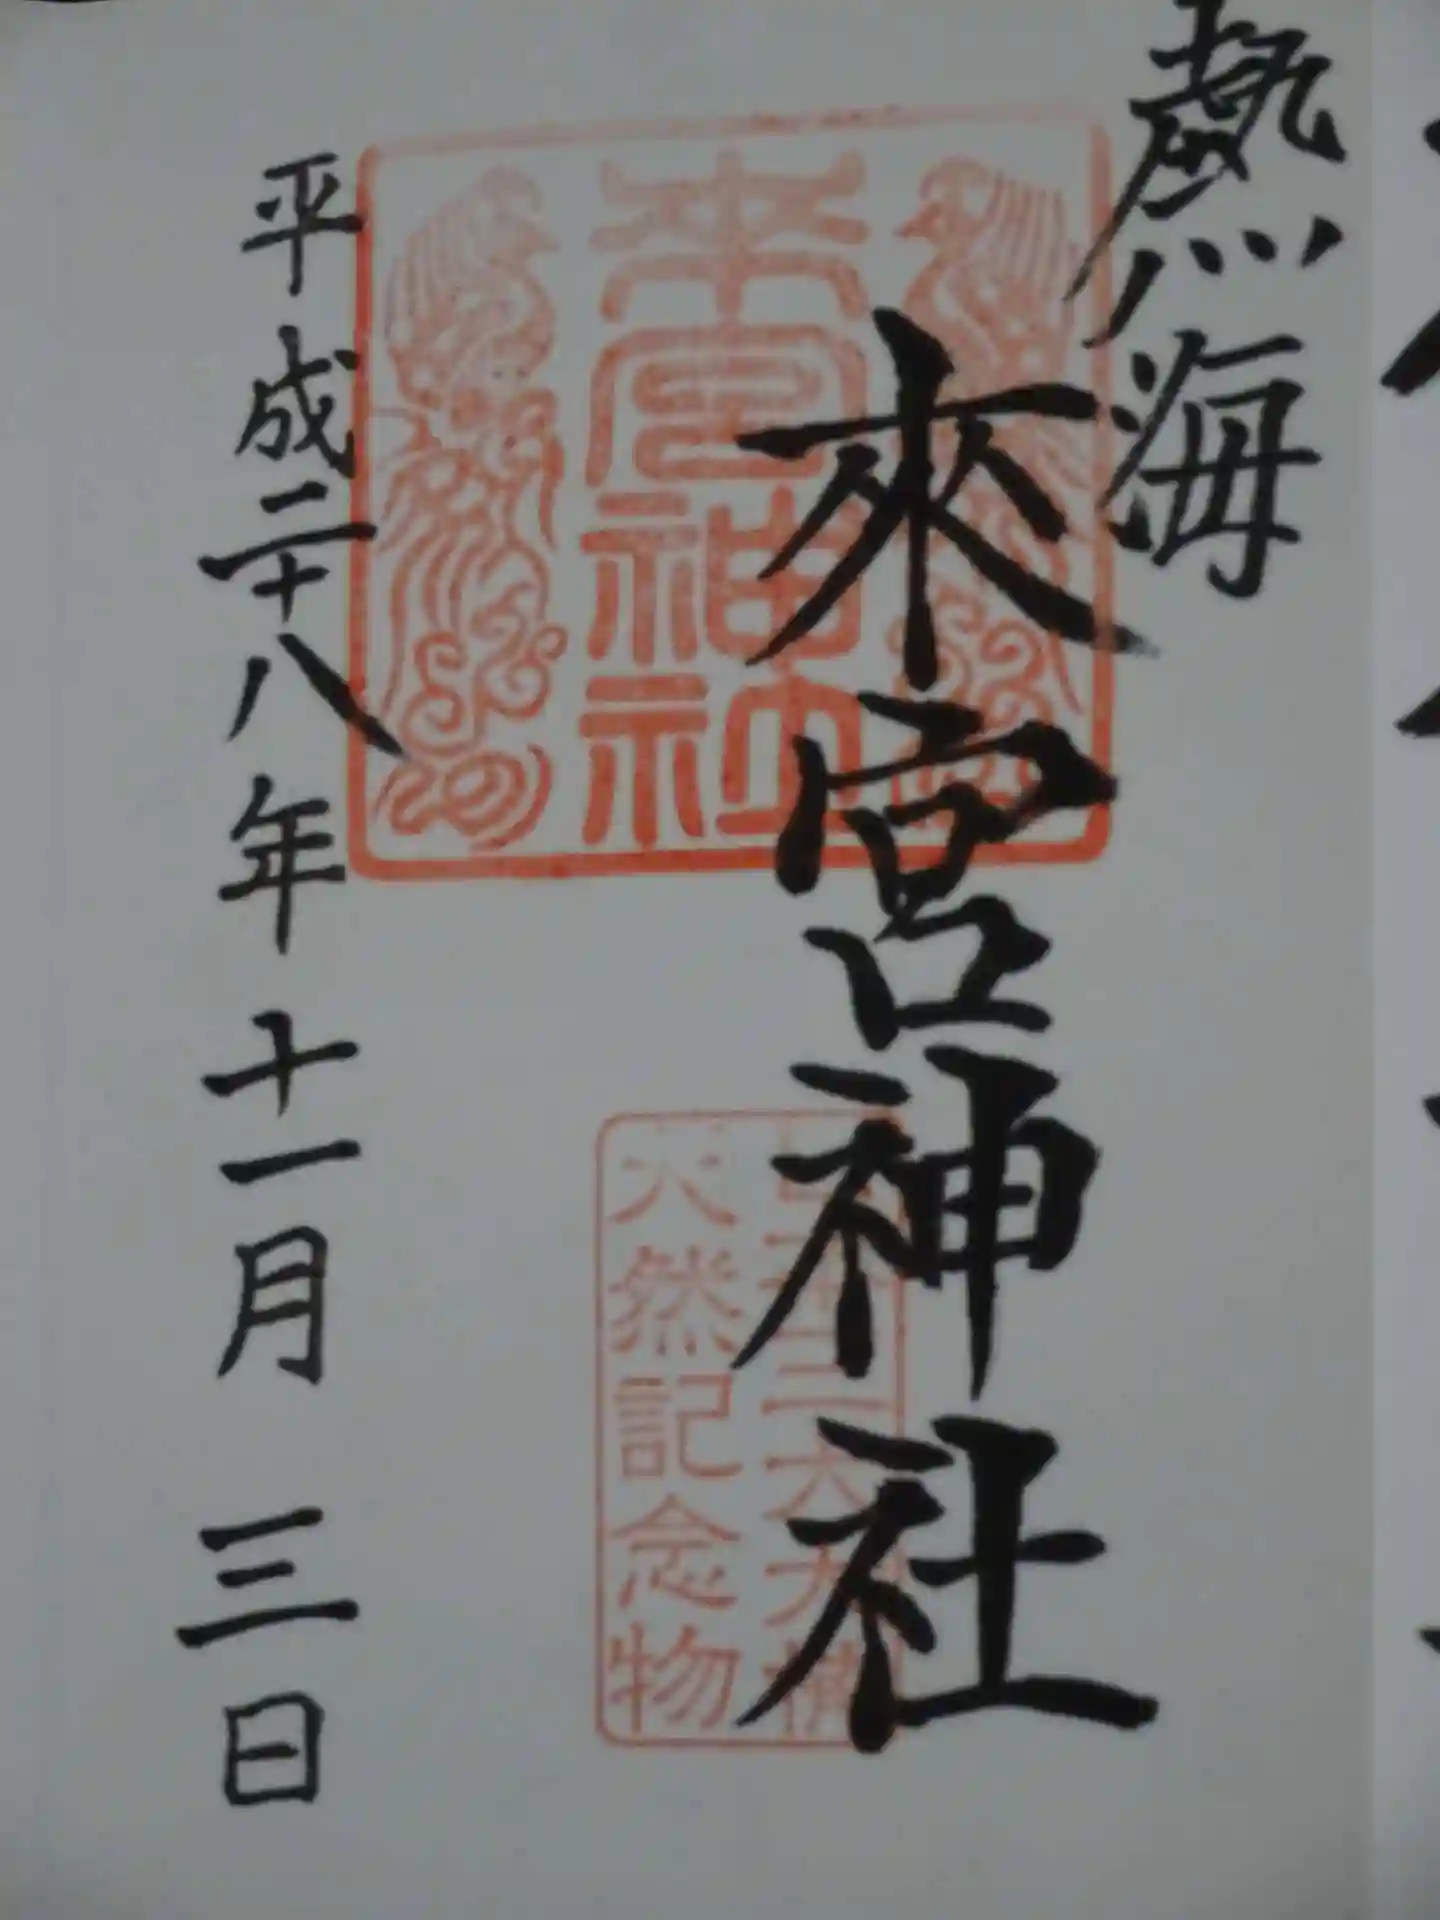 熱海
來宮神社
來宮神社
天然記念物
平成二十八年十一月三日